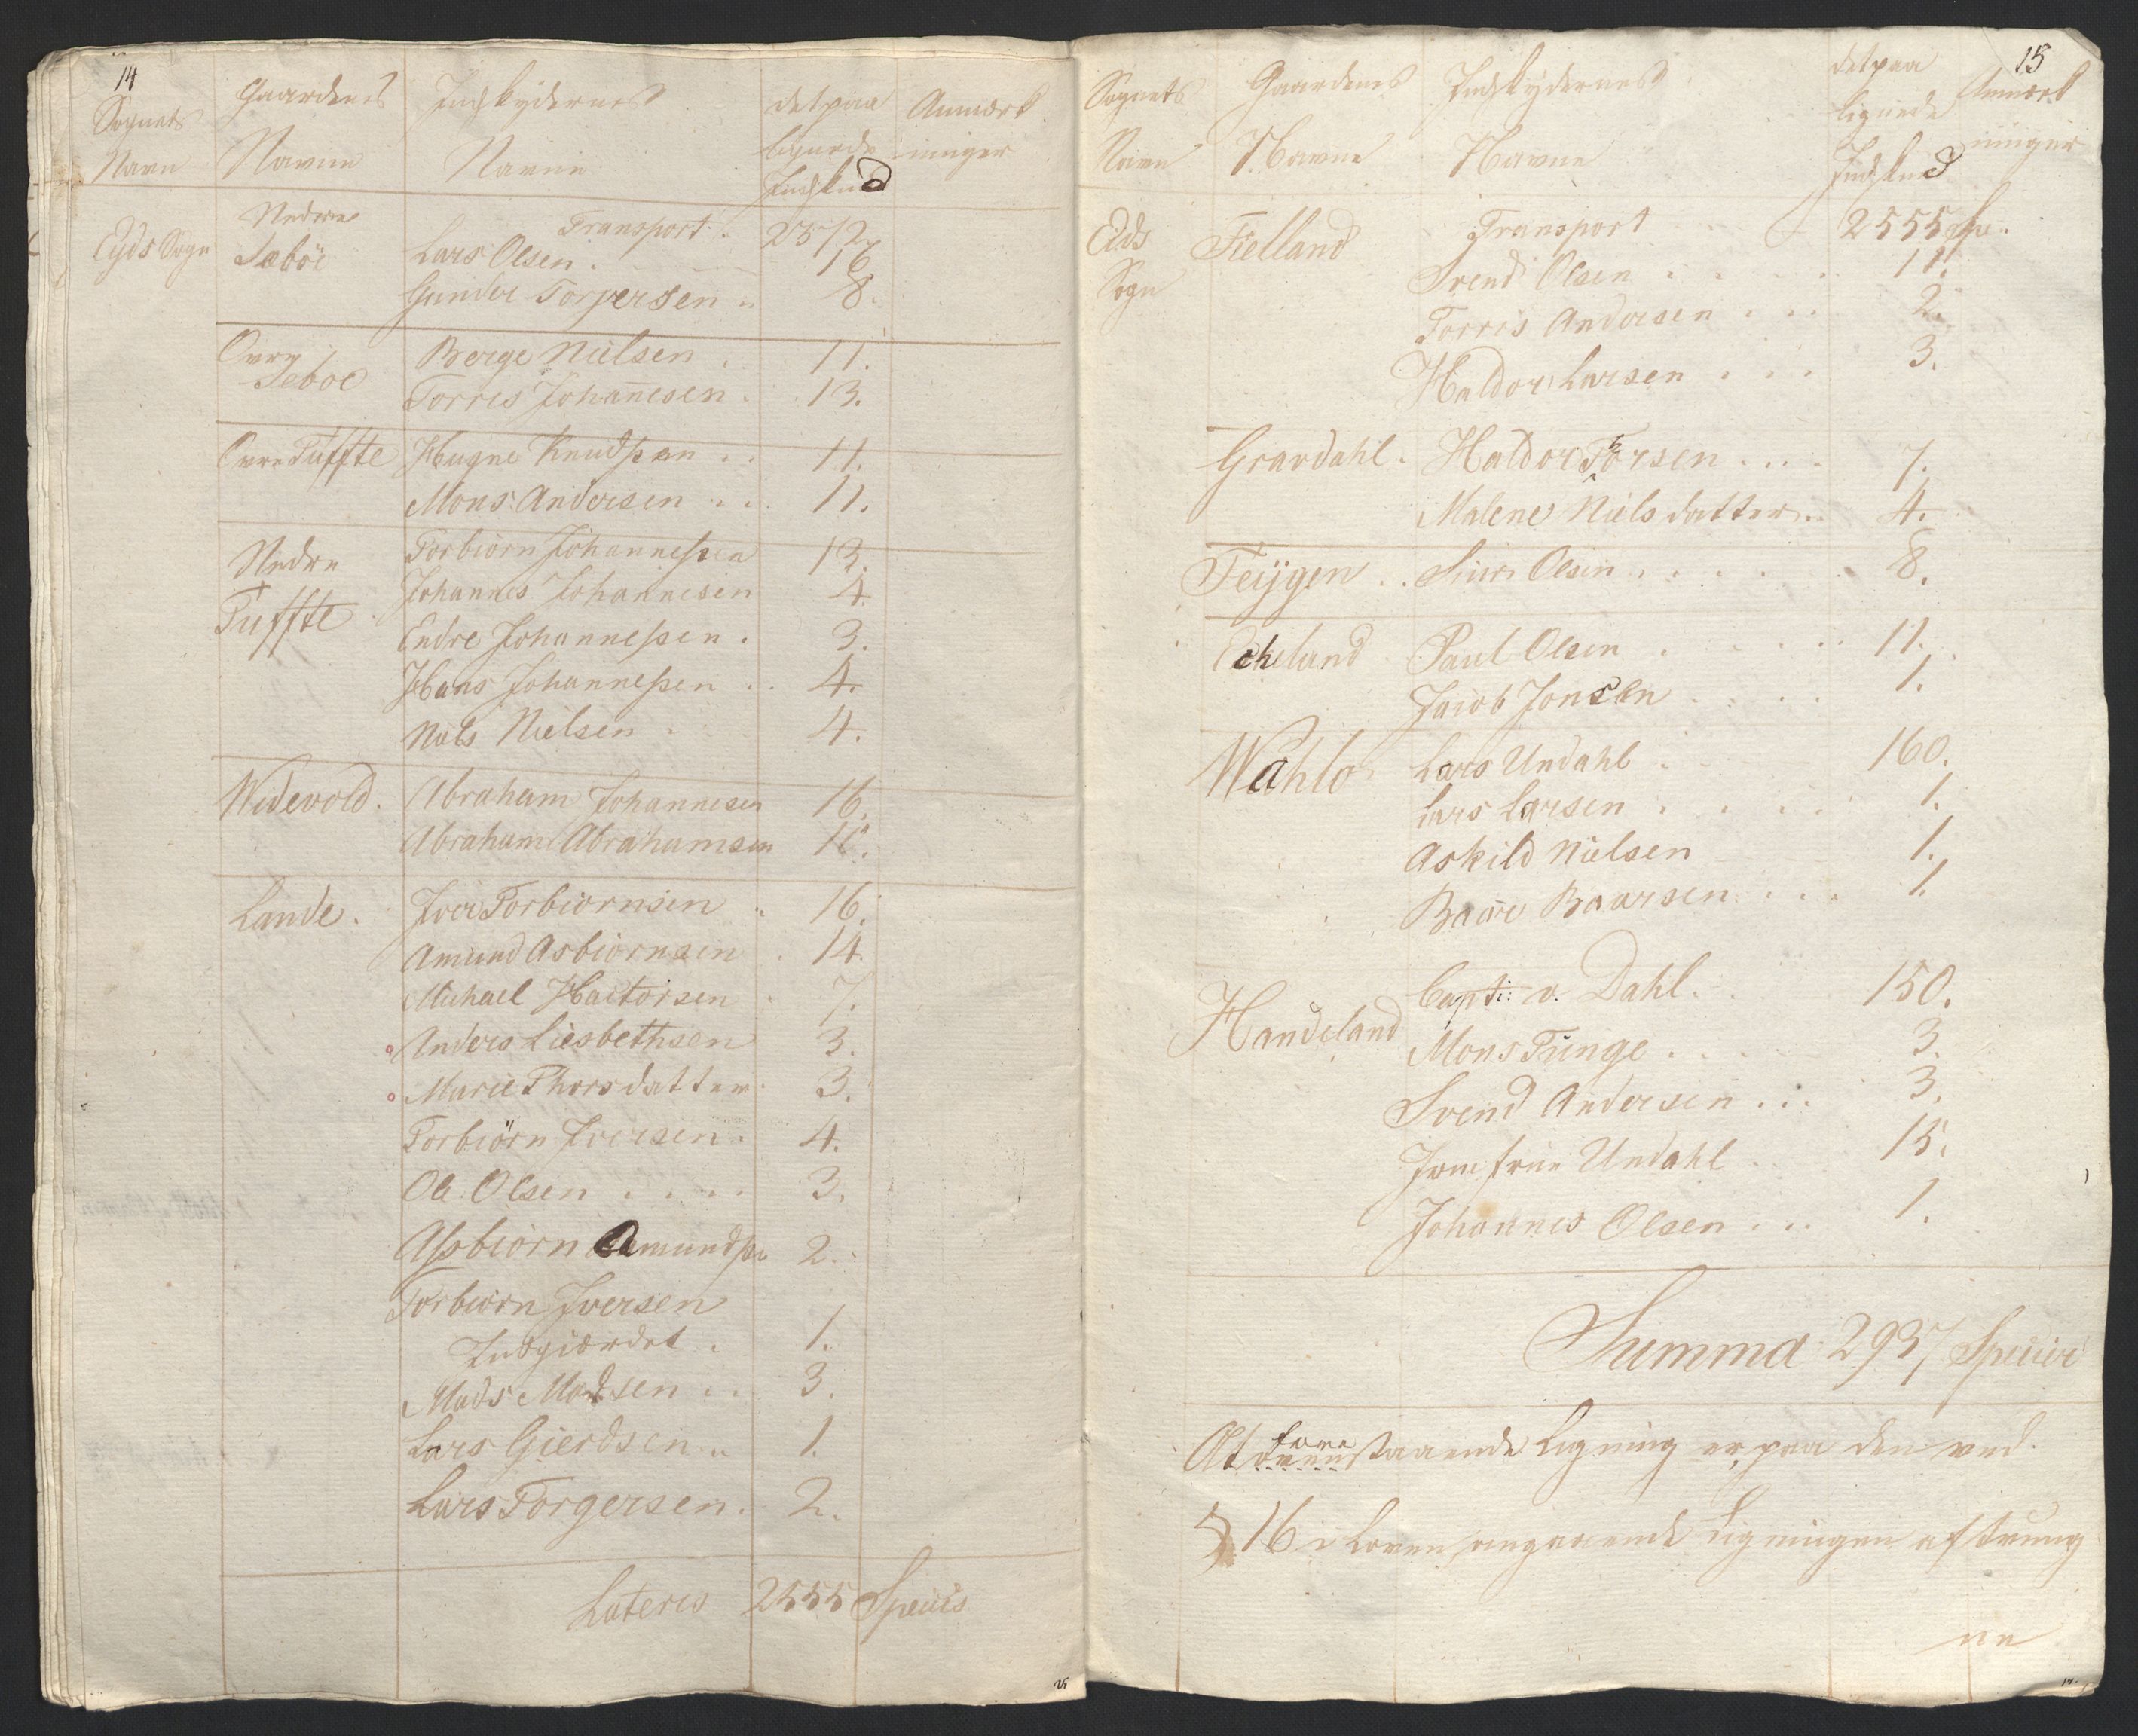 14
Sognets Navn | Gaardenes Navne | Indskydernes Navne | det paa lignede Indskud | Anmærkninger
Eyds Sogn | Nedere Sæböe | Transport | 2372
Lars Olsen | 16
Gunder Torgersen | 8.
Øvre Seboe | Berge Nielsen | 11.
Torres Johannesen | 13.
Øvre Tuffte | Haagne Knudssen | 11.
Mons Andersen | 11.
Nedre Tuffte | Torbiörn Johannessen | 13.
Johannes Johannesen | 4.
Endre Johannessen | 3.
Hans Johannessen | 4.
Niels Nielsen | 4.
Widevold | Abraham Johannesen | 16.
Abraham Abrahamsen | 11.
Lande | Iver Torbiörnsen | 16.
Amund Asbiörnsen | 14.
Michael Hactorsen | 7.
Anders Liesbethsen | 3.
Marie Thorsdatter | 3.
Torbiörn Iversen | 4.
Ole Olsen | 3.
Assbiörn Amundss | 2.
Torbiörn Iversen
Indgierdet | 1.
Mads Madsen | 3.
Lars Gierdsen | 1.
Lars Torgersen | 2.
Lateris 2555 Species
15
Sognets Navn | Gaardenes Navne | Indskydernes Navne | det paa lignede Indskud | Anmærkninger
Eids Sogn | Fielland | Transport | 2555 Spe.
Svend Olsen | 11.
Torris Andersen | 2.
Haldor Larsen | 3.
Gravdahl | Haldor Torsen | 7.
Malene Nielsdatter | 4.
Feÿgen | Siur Olsen | 8.
Echeland | Paul Olsen | 11.
Jacob Jonsen | 1.
Wahlo | Lars Undahl | 160.
Lars Larsen | 1.
Askild Nielsen | 1.
Baar Baarsen | 1.
Handeland | Capt: v. Dahl | 150.
Mons Tunge | 3.
Svend Andersen | 3.
Jomfrue Undahl | 15.
Johannes Olsen | 1.
Summa 2937 Specier
At ovenstaaende fore Ligning er paa den ved
§ 16 i Loven angaaende Ligningen aftvung
ne